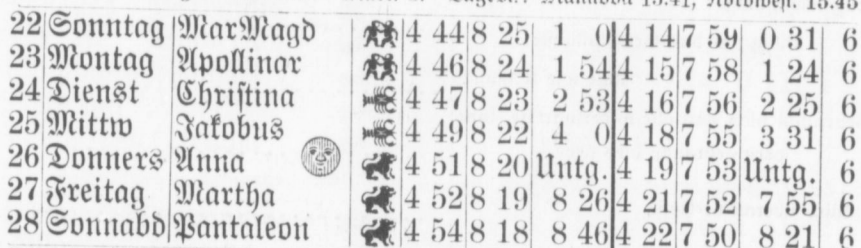 22 Sonntag MarMagd 4 44 8 25 1 0 4 14 7 59 0 31 6
23 Montag Apollinar 4 46 8 24 1 54 4 15 7 58 1 24 6
24 Dienst Christina 4 47 8 23 2 53 4 16 7 56 2 25 6
25 Mittw Jakobus 4 49 8 22 4 0 4 18 7 55 3 31 6
26 Donners Anna 4 51 8 20 Untg. 4 19 7 53 Untg. 6
27 Freitag Martha 4 52 8 19 8 26 4 21 7 52 7 55 6
28 Sonnabd Pantaleon 4 54 8 18 8 46 4 22 7 50 8 21 6